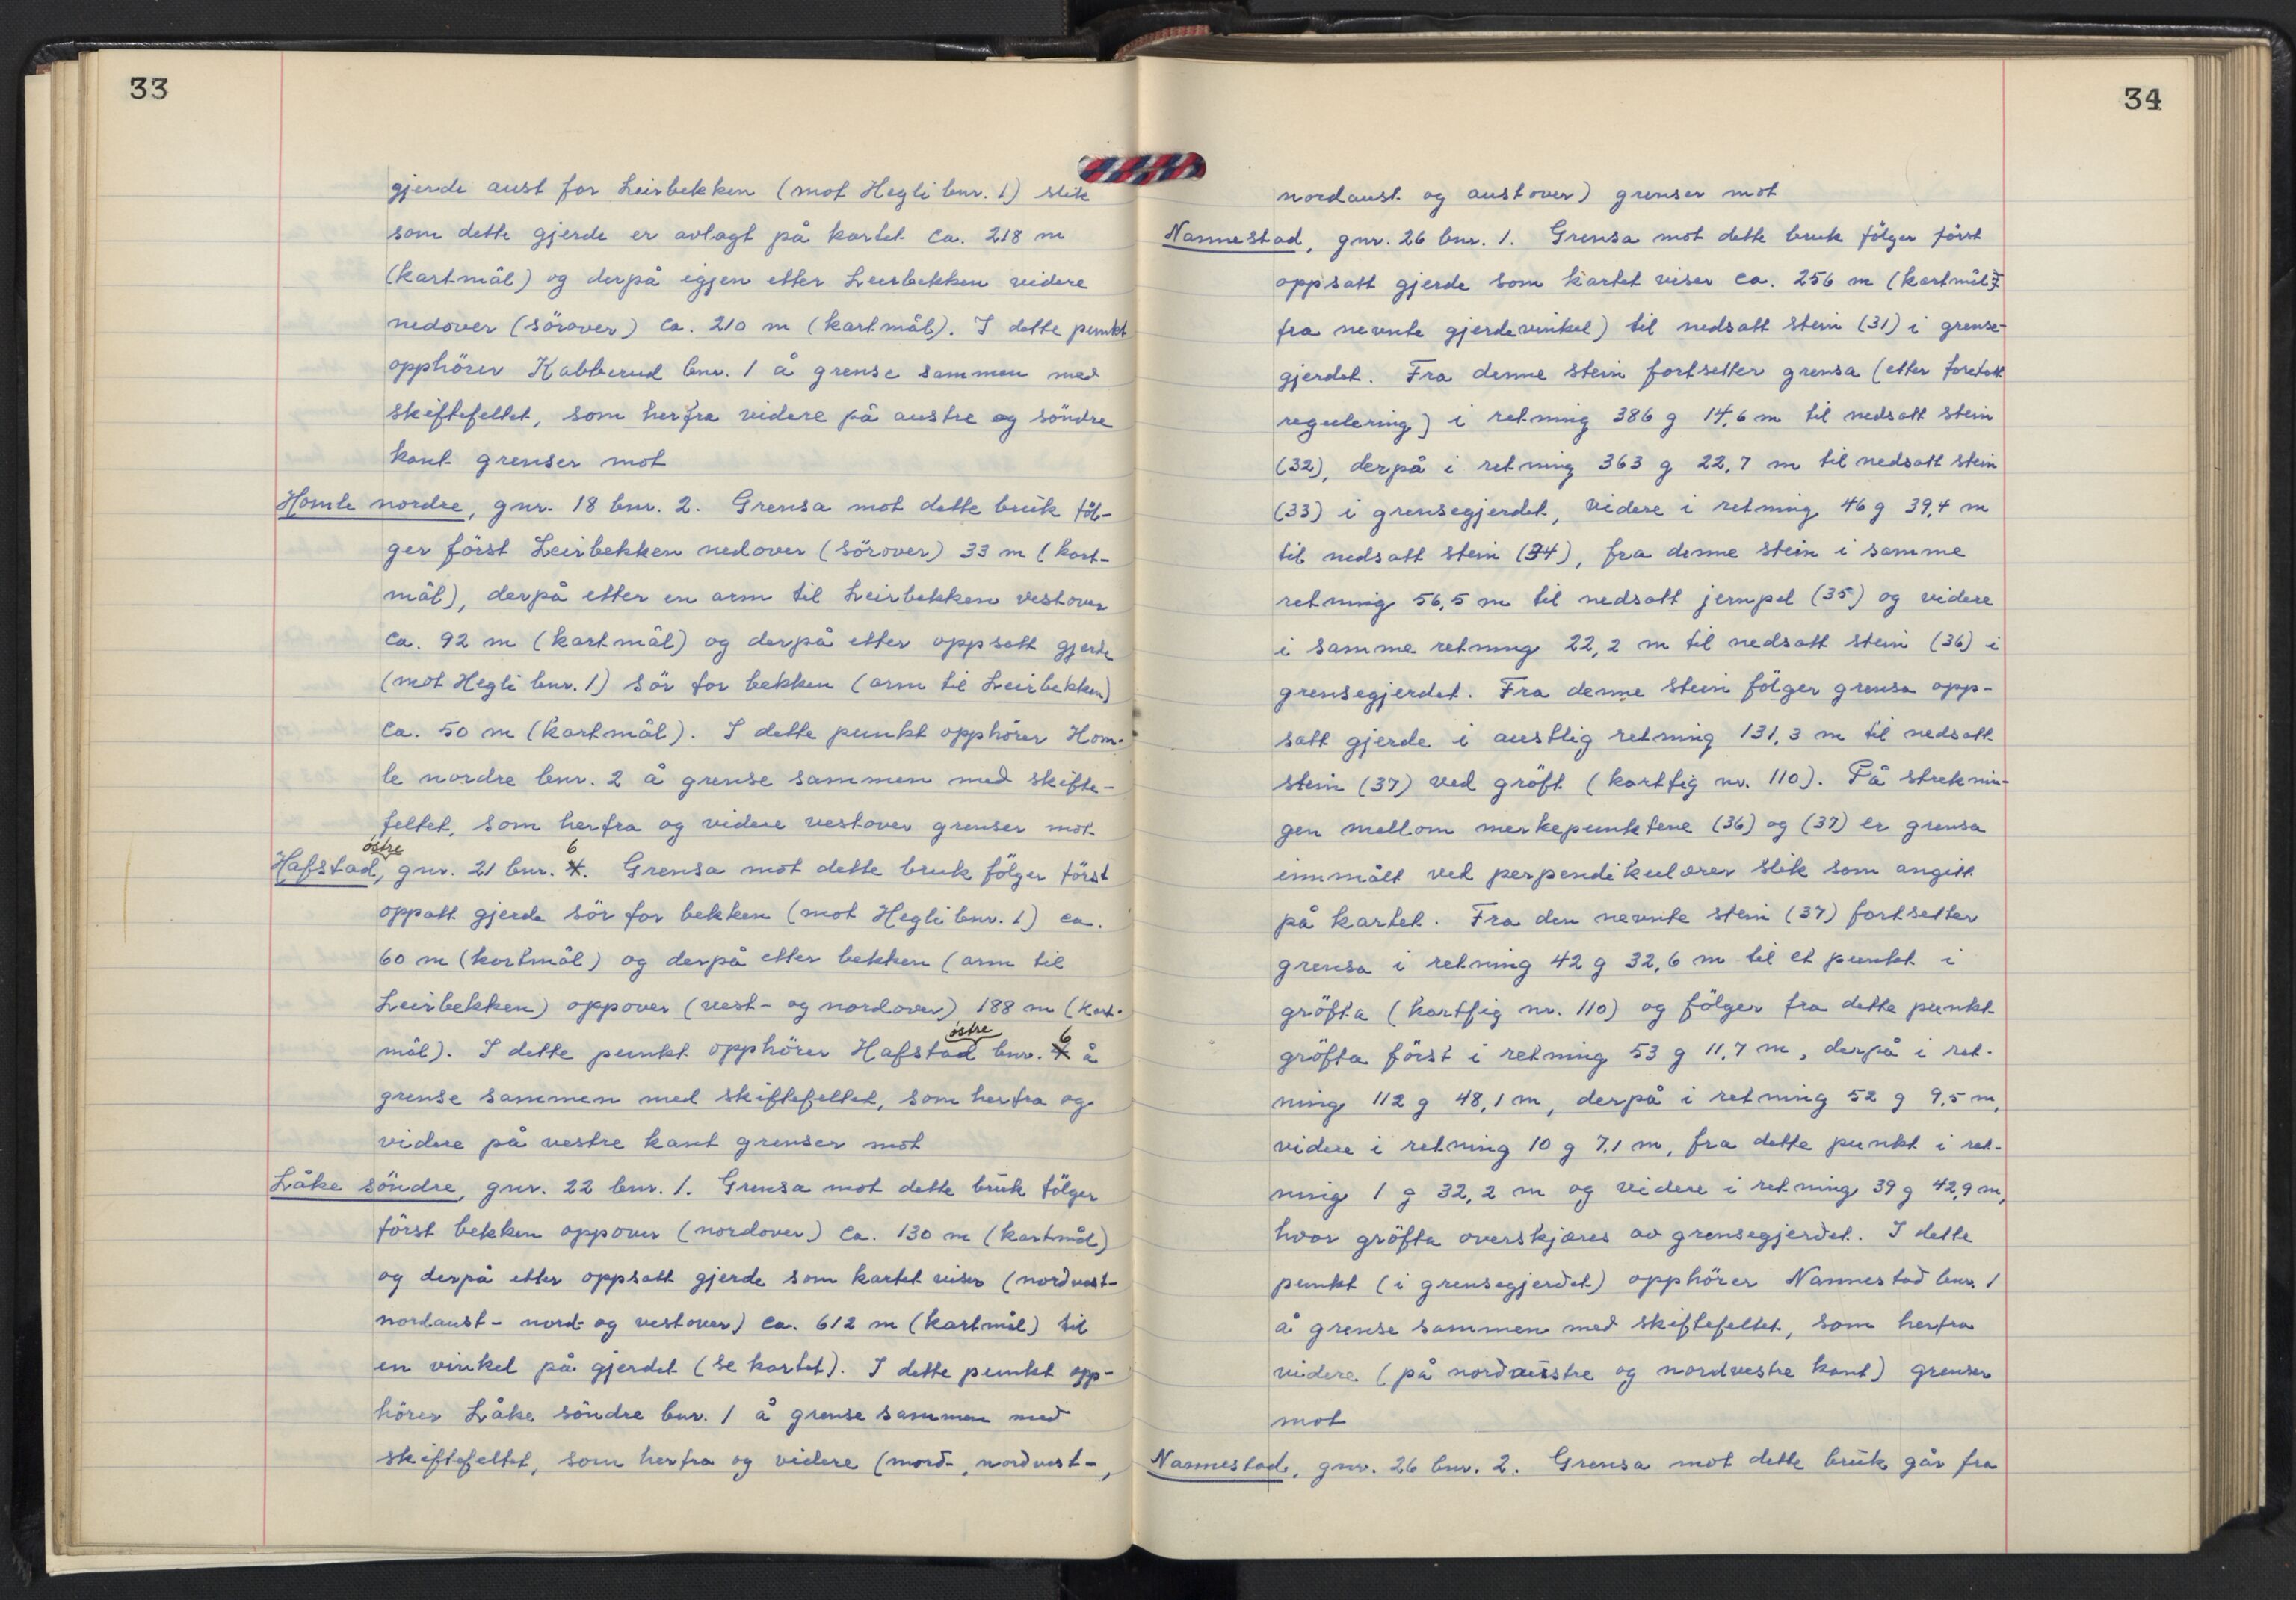 33
gjerde aust for Leirbekken (mot Hegli bnr. 1) slik
som dette gjerde er avlagt på kartet ca. 218 m
(kartmål) og derpå igjen etter Leirbekken videre
nedover (sörover) ca. 210 m (kartmål). I dette punkt
opphörer Kabberud bnr. 1 å grense sammen med
skiftefeltet, som herfra videre på austre og söndre
kant grenser mot
Homle nordre, gnr. 18 bnr. 2. Grensa mot dette bruk föl-
ger först Leirbekken nedover (sörover) 33 m (kart-
mål), derpå etter en arm til Leirbekken vestover
ca. 92 m (kartmål) og derpå etter oppsatt gjerde
(mot Hegli bnr. 1) sör for bekken (arm til Leirbekken)
ca. 50 m (kartmål). I dette punkt opphörer Hom-
le nordre bnr. 2 å grense sammen med skifte-
feltet, som herfra og videre vestover grenser mot
Hafstad östre, gnr. 21 bnr. 6. Grensa mot dette bruk fölger först
oppatt gjerde sör for bekken (mot Hegli bnr. 1) ca.
60 m (kartmål) og derpå etter bekken (arm til
Leirbekken) oppover (vest- og nordover) 188 m (kart-
mål). I dette punkt opphörer Hafstad östre bnr. 6 å
grense sammen med skiftefeltet, som herfra og
videre på vestre kant grenser mot
Låke söndre, gnr. 22 bnr. 1. Grensa mot dette bruk fölger
först bekken oppover (nordover) ca. 130 m (kartmål)
og derpå etter oppsatt gjerde som kartet viser (nordvest-
nordaust- nord- og vestover) ca. 612 m (kartmål) til
en vinkel på gjerdet (se kartet). I dette punkt opp-
hörer Låke söndre bnr. 1 å grense sammen med
skiftefeltet, som herfra og videre (nord-, nordvest-,
34
nordaust- og austover) grenser mot
Nannestad, gnr. 26 bnr. 1. Grensa mot dette bruk fölger först
oppsatt gjerde som kartet viser ca. 256 m (kartmål
fra nevnte gjerdevinkel) til nedsatt stein (31) i grense-
gjerdet. Fra denne stein fortsetter grensa (etter foretatt
regulering) i retning 386 g 14,6 m til nedsatt stein
(32), derpå i retning 363 g 22,7 m til nedsatt stein
(33) i grensegjerdet, videre i retning 46 g 39,4 m
til nedsatt stein (34), fra denne stein i samme
retning 56,5 m til nedsatt jernpel (35) og videre
i samme retning 22,2 m til nedsatt stein (36) i
grensegjerdet. Fra denne stein fölger grensa opp-
satt gjerde i austlig retning 131,3 m til nedsatt
stein (37) ved gröft (kartfig nr. 110). På streknin-
gen mellom merkepunktene (36) og (37) er grensa
innmålt ved perpendikulærer slik som angitt
på kartet. Fra den nevnte stein (37) fortsetter
grensa i retning 42 g 32,6 m til et punkt i
gröfta (kartfig nr. 110) og fölger fra dette punkt
gröfta först i retning 53 g 11,7 m, derpå i ret-
ning 112 g 48,1 m, derpå i retning 52 g 9,5 m,
videre i retning 10 g 7,1 m, fra dette punkt i ret-
ning 1 g 32,2 m og videre i retning 39 g 42,9 m,
hvor gröfta overskjæres av grensegjerdet. I dette
punkt (i grensegjerdet) opphörer Nannestad bnr. 1
å grense sammen med skiftefeltet, som herfra
videre (på nordaustre og nordvestre kant) grenser
mot
Nannestad, gnr. 26 bnr. 2. Grensa mot dette bruk går fra